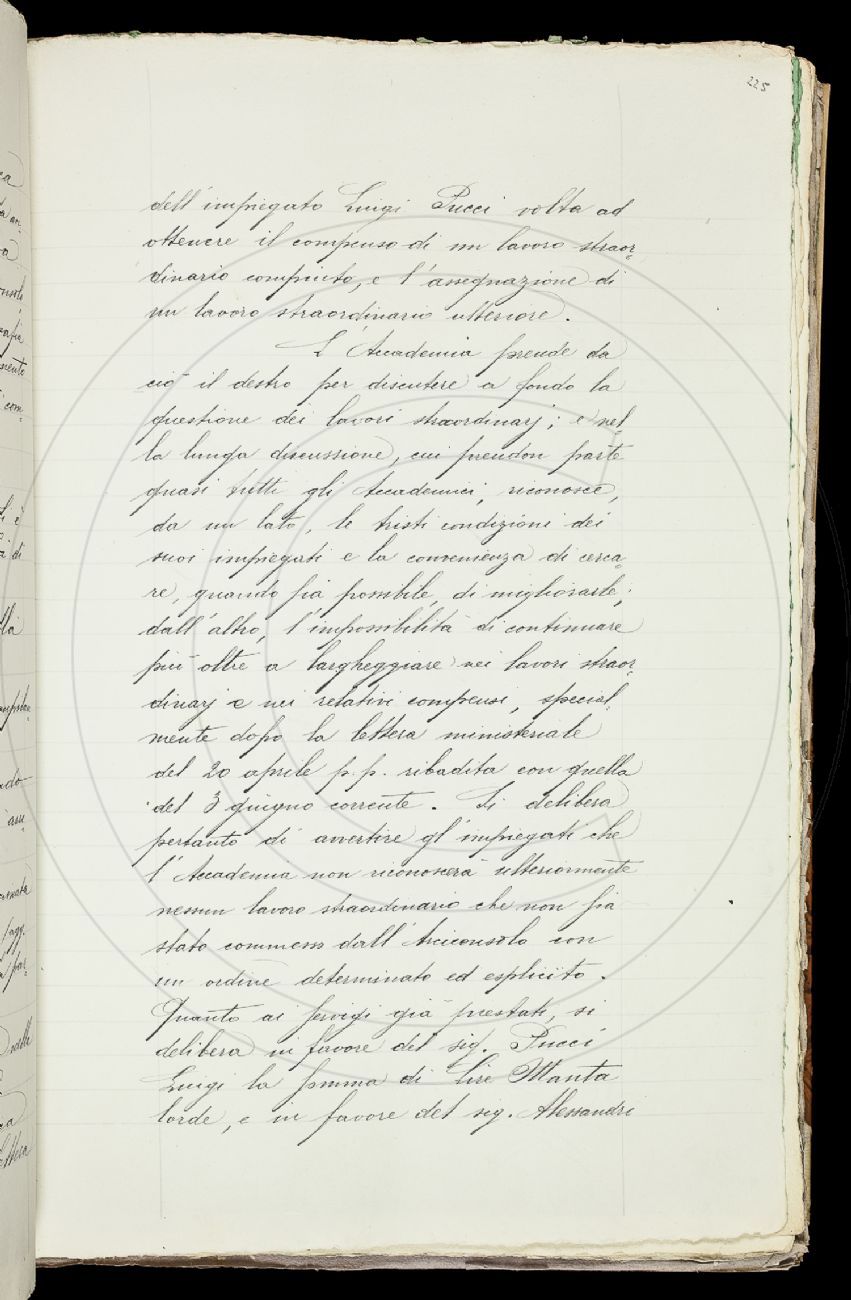 225
dell'impiegato Luigi Pucci volta ad
ottenere il compenso di un lavoro straor-
dinario compiuto, e l'assegnazione di
un lavoro straordinario ulteriore.
L'Accademia prende da
ciò il destro per discutere a fondo la
questione dei lavori straordinarj; e nel-
la lunga discussione, cui prendon parte
quasi tutti gli Accademici, riconosce,
da un lato, le tristi condizioni dei
suoi impiegati e la convenienza di cerca-
re, quando sia possibile, di migliorarle;
dall'altro, l'impossibilità di continuare
più oltre a largheggiare nei lavori straor-
dinarj e nei relativi compensi, special-
mente dopo la lettera ministeriale
del 20 aprile p.p. ribadita con quella
del 3 giugno corrente. Si delibera
pertanto di avvertire gl'impiegati che
l'Accademia non riconoscerà ulteriormente
nessun lavoro straordinario che non sia
stato commesso dall'Arciconsolo con
un ordine determinato ed esplicito.
Quanto ai servigi già prestati, si
delibera in favore del sig. Pucci
Luigi la somma di Lire Ottanta
lorde, e in favore del sig. Alessandri